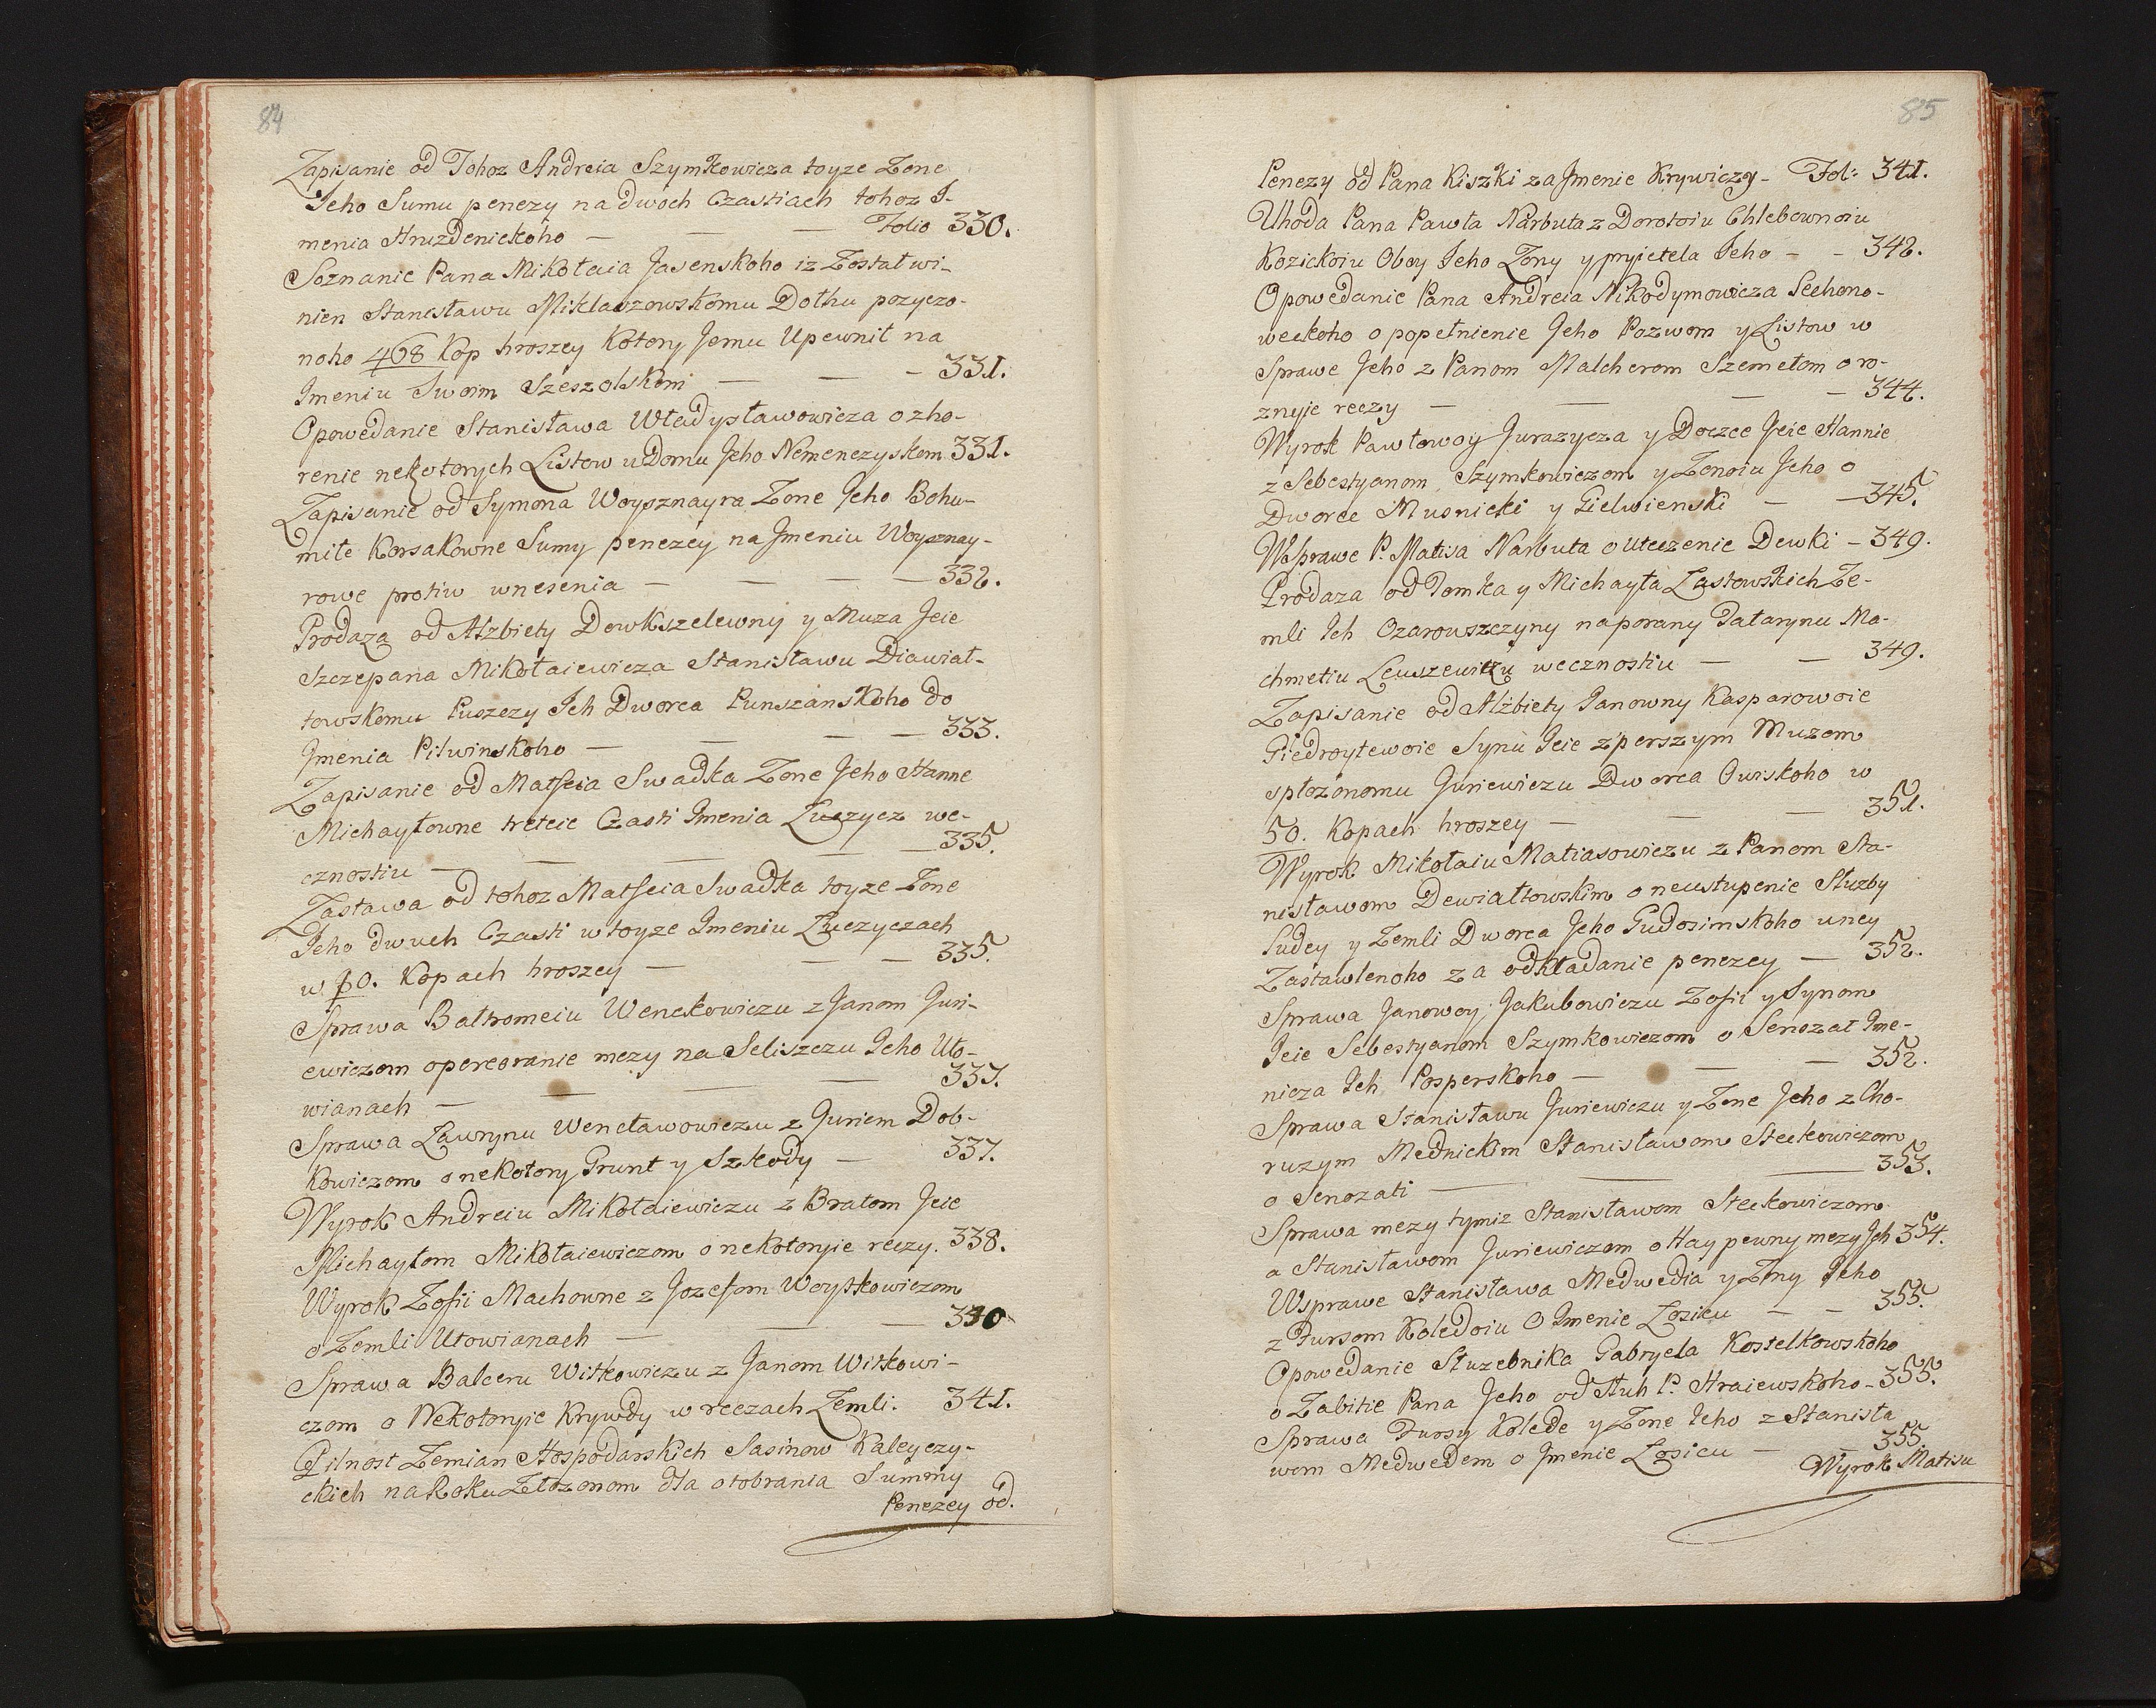 84
Zapisanie od Tohoz Andreia Szymkowicza toyze Zone
Jeho Sumu penezy na dwoch Czastiach tohoz I-
menia Hnizdenickoho — — — Folio 330.
Soznanie Pana Mikołaia Jasenskoho iz Został wi-
nien Stanisławu Miklaszowskomu Dołhu pozyczo-
noho 468 Kop hroszey Kotory Jemu Upewnił na
Imeniu Swoim Szeszolskom — — - 331.
Opowedanie Stanisława Władysławowicza o zho-
renie nekotorych Listow u Domu Jeho Nemenczyskom 331.
Zapisanie od Symona Woysznayra Zone Jeho Bohu-
miłe Korsakowne Sumy penezey na Jmeniu Woysznay-
rowe protiw wnesenia — — — — 332.
Prodaza od Alzbiety Dowkszelewny y Muza Jeie
Szczepana Mikołaiewicza Stanisławu Diawiał-
towskomu Puszczy Jch Dworca Punszanskoho do
Jmenia Pilwinskoho — — — — 333.
Zapisanie od Matfeia Swadka Zone Jeho Hanne
Michayłowne treteie Czasti Imenia Łuczycz we-
cznostiu — — — — — 335.
Zastawa od tohoz Matfeia Swadka toyze Zone
Jeho dwuch Czasti w toyze Imeniu Łuczyczach
w 80. Kopach hroszey — — — 335.
Sprawa Bałtromeiu Wenckowiczu z Janom Juri-
ewiczom opereoranie mezy na Seliszczu Jeho Uto-
wianach — — — — 337.
Sprawa Ławrynu Wencławowiczu z Juriem Dob-
kowiczom o nekotory Grunt y Szkody — 337.
Wyrok Andreiu Mikołaiewiczu z Bratom Jeie
Michayłom Mikołaiewiczom o nekotoryie reczy. 338.
Wyrok Zofii Machowne z Jozefom Woytkowiczom
o Zemli Utowianach — — — 340
Sprawa Balceru Witkowiczu z Janom Witkowi-
czom o Nekotoryie Krywdy w reczach Zemli. 341.
Pilnost Zemian Hospodarskich Sasinow Kaleyczy-
ckich na Roku Złozonom dla otobrania Summy
Penezey od.
85
Penezy od Pana Kiszki za Jmenie Krywiczy - Fol: 341.
Uhoda Pana Pawła Narbuta z Dorotoiu Chlebownoiu
Kozickoiu Oboy Jeho Zony y pryietela Jeho - - 342.
Opowedanie Pana Andreia Nikodymowicza Sechono-
weckoho o popełnienie Jeho Pozwom y Listow w
Sprawe Jeho z Panom Malcherom Szemetom o ro-
znyie reczy — — — - 344.
Wyrok Pawłowoy Jurazycza y Doczce Jeie Hannie
z Sebestyanom Szymkowiczom y Zenoiu Jeho o
Dworce Musnicki y Gielwienski — — 345.
W Sprawe P. Matisa Narbuta o Uteczenie Dewki - 349.
Prodaza od Tomka y Michayła Łastowskich Ze-
mli Ich Ozarowszczyny naporany Tatarynu Ma-
chmetiu Leuszewiczu wecznostiu — — 349.
Zapisanie od Alżbiety Janowny Kasparowoie
Giedroytewoie Synu Jeie z perszym Muzom
spłozonomu Juriewiczu Dworca Owiskoho w
50. Kopach hroszey — — — 351.
Wyrok Mikołaiu Matiasowiczu z Panom Sta-
nisławom Dewiałtowskim o neustupenie Słuzby
Ludey y Zemli Dworca Jeho Gudosimskoho uney
Zastawlenoho za odkładanie penezey — 352.
Sprawa Janowoy Jakubowiczu Zofii y Synom
Jeie Sebestyanom Szymkowiczom o Senozat Ime-
nicza Jch Posperskoho — — — 352.
Sprawa Stanisławu Juriewiczu y Zone Jeho z Cho-
ruzym Mednickim Stanisławom Steckowiczom
o Senozati — — — 353.
Sprawa mezy tymiz Stanisławom Steckowiczom
a Stanisławom Juriewiczom o Hay pewny mezy Jch 354.
Wsprawe Stanisława Medwedia y Zony Jeho
z Fursom Koledoiu O Imenie Łosicu — - 355.
Opowedanie Słuzebnika Gabryela Kostelkowskoho
o Zabitie Pana Jeho od Słuh P. Hraiewskoho - 355.
Sprawa Fursy Kolede y Zone Jeho z Stanisła
wom Medwedem o Jmenie Łosicu — — 355
Wyrok Matisu